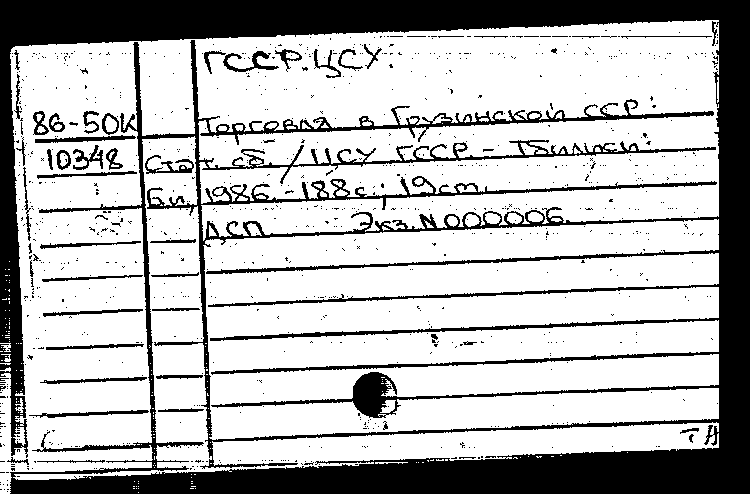 ГССР. ЦСУ.
86-50К Торговля в Грузинской ССР:
10348 Стат. сб. / ЦСУ ГССР. - Тбилиси:
Б.и., 1986. - 188с.; 19см.
ДСП Экз. N 000006.